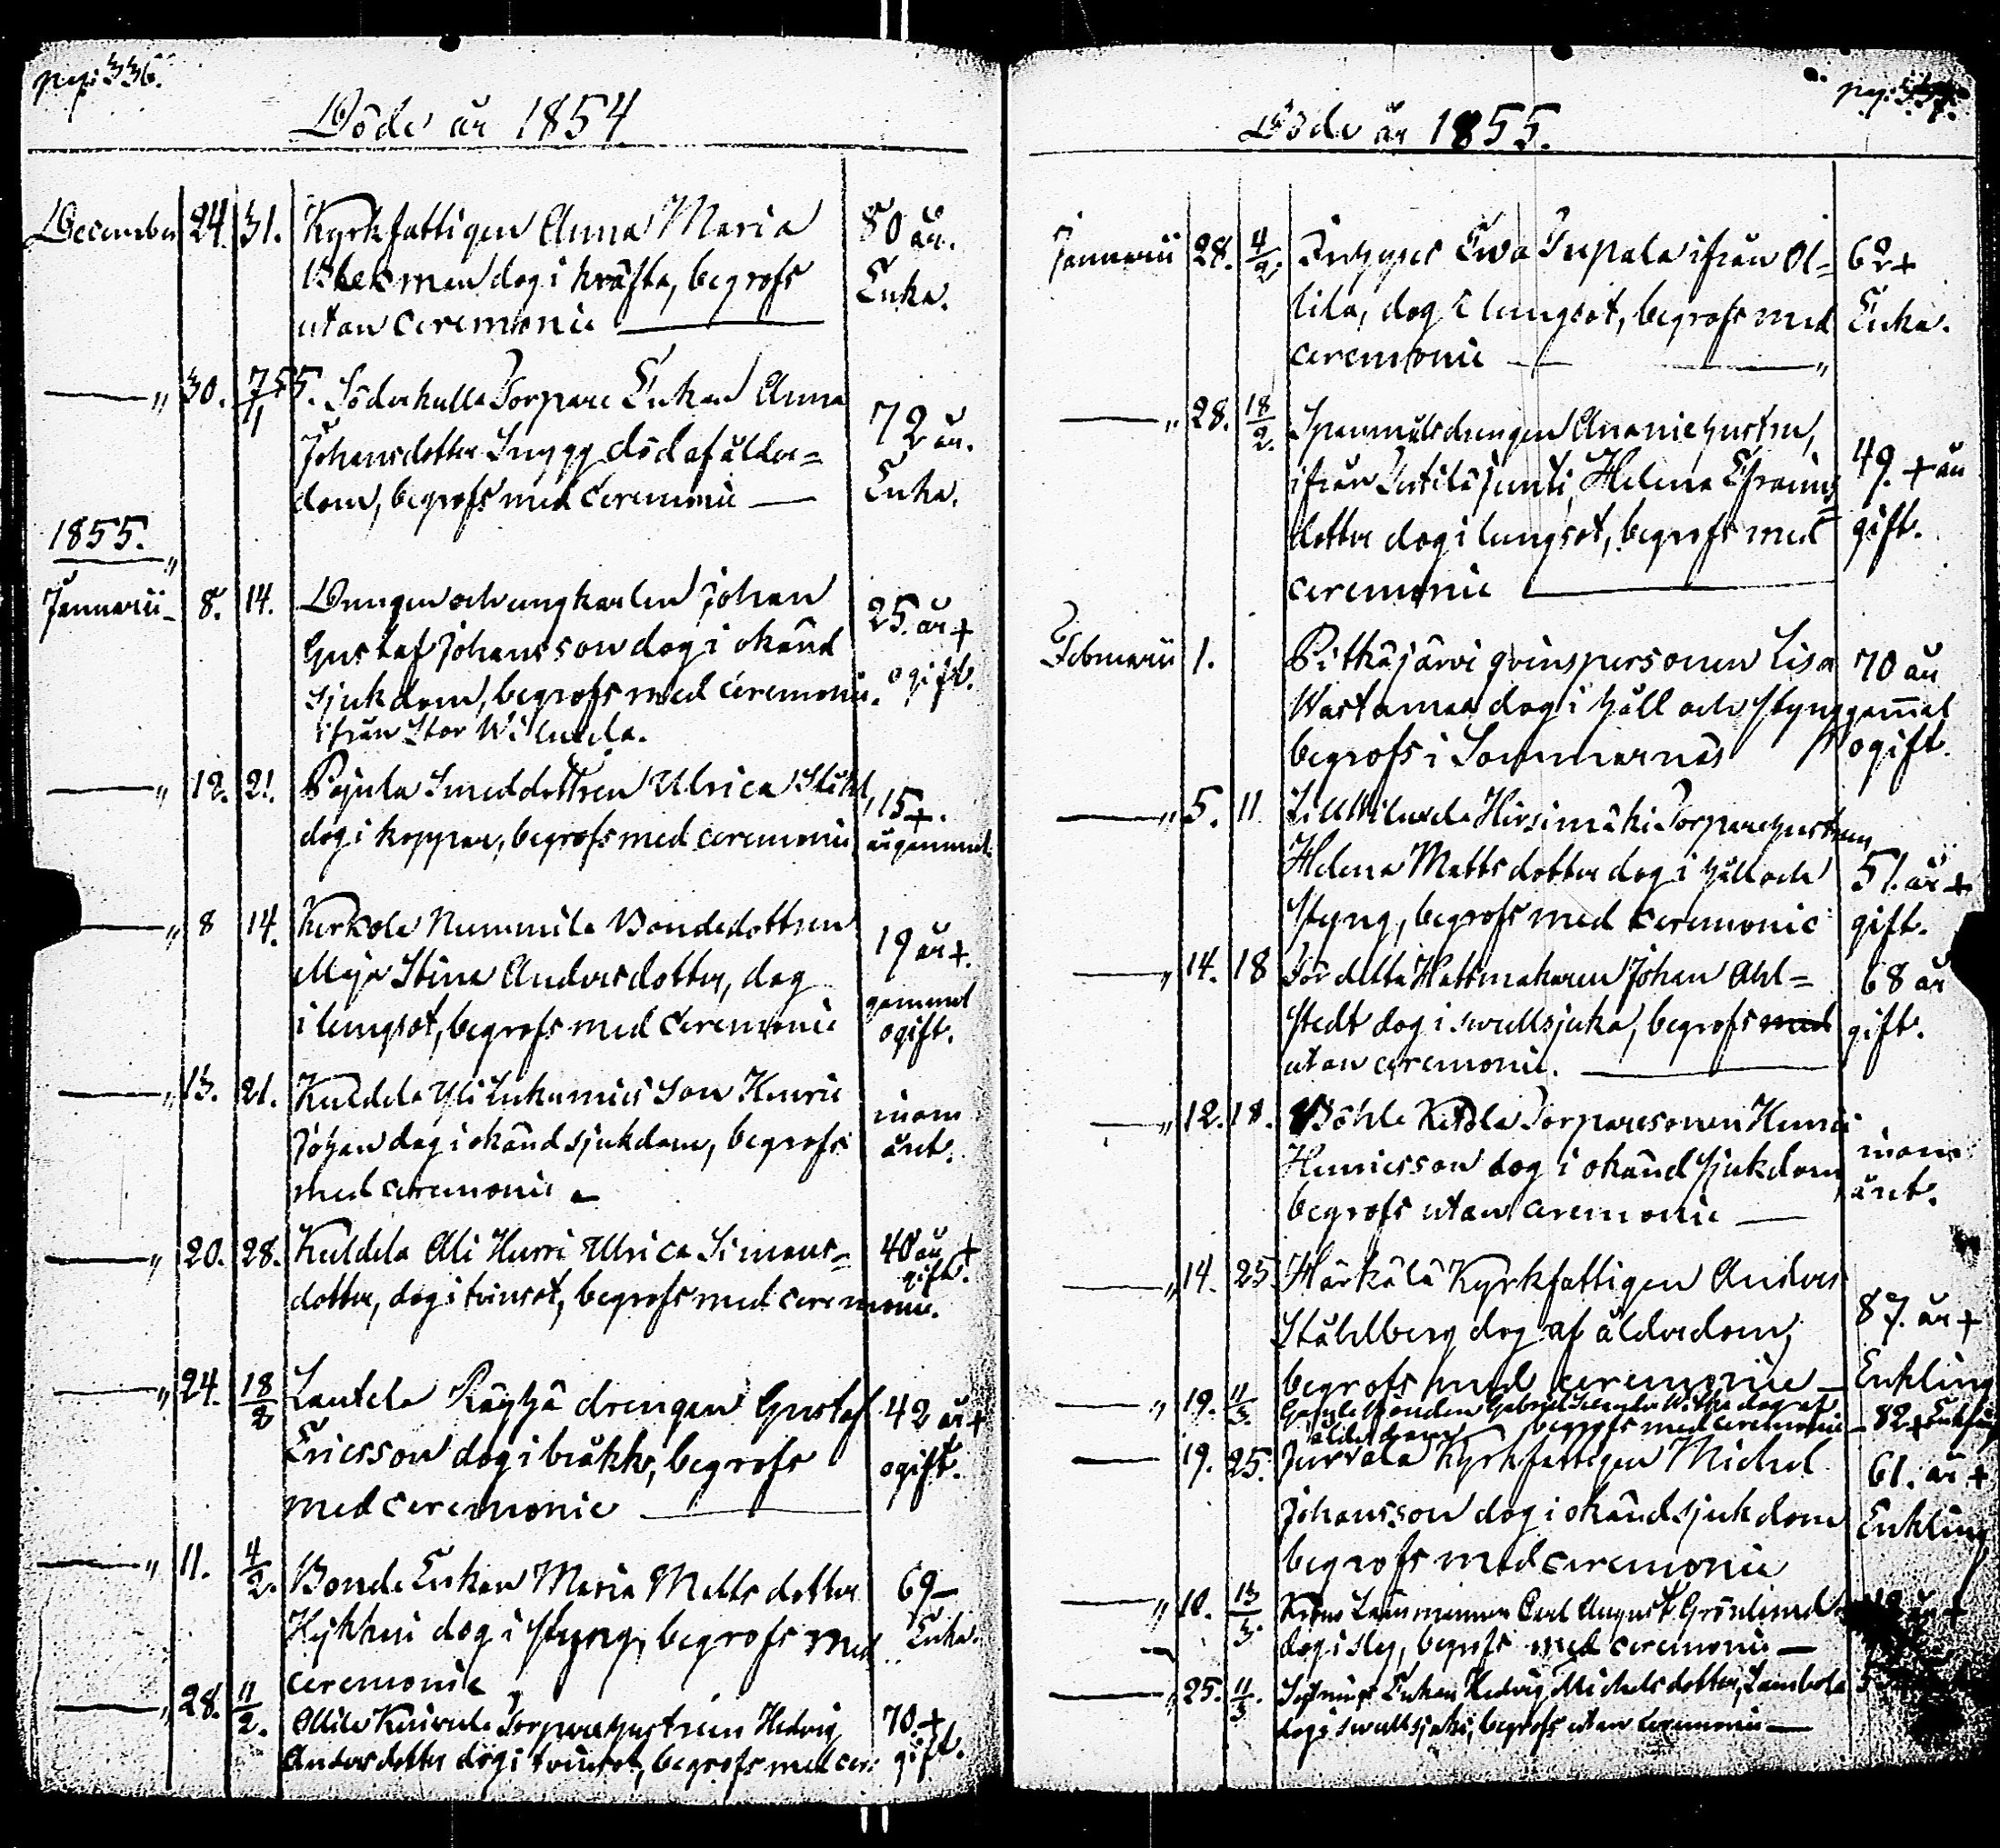 pag: 336.
Döde år 1854
December 24. 31. Kyrkfattigen Anna Maria 80 år.
man dog i kräfta, begrofs Enka.
utan ceremonie
" 30. 7/1 55. Söderkulla Torpare Enkan Anna 72 år.
Johansdotter Snygg död af ålder=
dom, begrofs med ceremonie Enka.
1855.
Januarii 8. 14. Drengen och ungkarlen Johan 25. år +
Gustaf Johansson dog i okänd ogift.
sjukdom, begrofs med ceremonie.
ifrån Stor Wilunda.
" 12. 21. Pajula Smeddottren Ulrica Ståhl, 15 +.
dog i koppor, begrofs med ceremonie år gammal
" 8 14. Kerkola Nummila Bondedottren 19 år +.
Maja Stina Andersdotter, dog gammal
i lungsot, begrofs med ceremonie ogift.
" 13. 21. Kuldela Yli son Henric inom
Johan dog i okänd sjukdom, begrofs året.
med ceremonie
" 20. 28. Kuldela Ali Hurri Ulrica Simons= 40 år +
gift.
dotter, dog i tvinsot, begrofs med ceremonie.
" 24. 18/2 Lautela Räyhä drengen Gustaf 42 år +
Ericsson dog i bråkk, begrofs ogift.
med ceremonie
" 11. 4/2. Bonde Enkan Maria Matts dotter 69
dog i styng, begrofs med Enka.
ceremonie
" 28. 11/2. Torpare hustrun Hedvig 70 +
Anders dotter dog i tvinsot, begrofs med cer: gift.
pag: 337.
Döde år 1855.
Januarii 28. 4/2. Ewa ifrån Ol= 62 +
lila, dog i lungsot, begrofs med Enka.
ceremonie "
" 28. 18/2. Spanmålsdrengen Ananie hustru, 49. + år
ifrån Helena Efraims
dotter dog i lungsot, begrofs med gift.
ceremonie
Februarii 1. Pitkäjärvi qvinspersonen Lisa 70 år
Wastamaa dog i håll och styng gam̄al
begrofs i Sommarnäs ogift.
" 5. 11. Lill Wilunda Hirsimäki Torparehustrun
Helena Mattsdotter dog i håll och 51. år +
styng, begrofs med ceremonie gift.
" 14. 18 Hattmakaren Johan Ahl= 68 år
stedt dog i swullsjuka, begrofs med gift.
utan ceremonie.
" 12. 18. Böhle Ketola Torparesonen Henric inom
Henricsson dog i okänd sjukdom, året.
begrofs utan ceremonie
" 14. 25 Härkälä Kyrkfattigen Anders
Ståhlberg dog af ålderdom, 87. år +
begrofs med ceremonie Enkling
" 19. 11/3. Bonden Gabriel dog af
ålderdom begrofs med ceremonie 82 + Enkling
19. 25. Jurvala Kyrkfattigen Michel 61. år +
Johansson dog i okänd sjukdom Enkling
begrofs med ceremonie
" 10. 13/3. Krono Länsmannen Carl August Grönlund
dog i slag, begrofs med ceremonie
" 25. 11/3. Enkan Hedvig Michelsdotter,
dog i swullsjuka, begrofs utan ceremonie